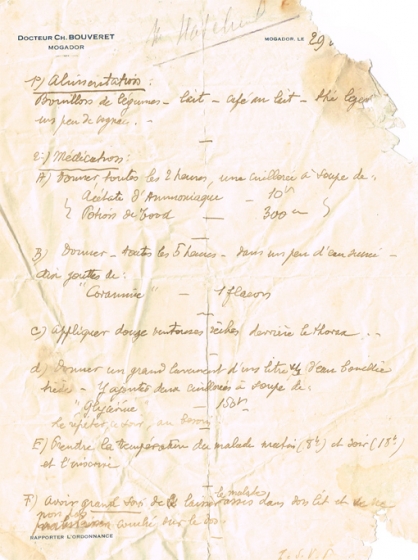 DOCTEUR CH. BOUVERET
MOGADOR
MOGADOR, LE 29
1°) Alimentation :
Bouillons de légumes - Lait - Café au lait - thé léger
un peu de
2°) Médication :
A) Donner toutes les 2 heures, une cuillerée à soupe de :
Acétate d'Ammoniaque - 10
Potion de Todd - 300
B) Donner - toutes les 5 heures - dans un peu d'eau sucrée -
gouttes de :
"Coramine" - 1 flacon
C) Appliquer douze ventouses sèches derrière le thorax. -
d) Donner un grand lavement d'un litre d'eau bouillie
tiède - Y ajouter deux cuillerées à soupe de :
"Glycérine" - 150
Le répéter ce soir, au besoin
E) Prendre la température du malade matin (8h) et soir (18h)
et l'inscrire
F) Avoir grand soin de laisser le malade assis dans son lit et
non pas couché sur le dos.
RAPPELER L'ORDONNANCE